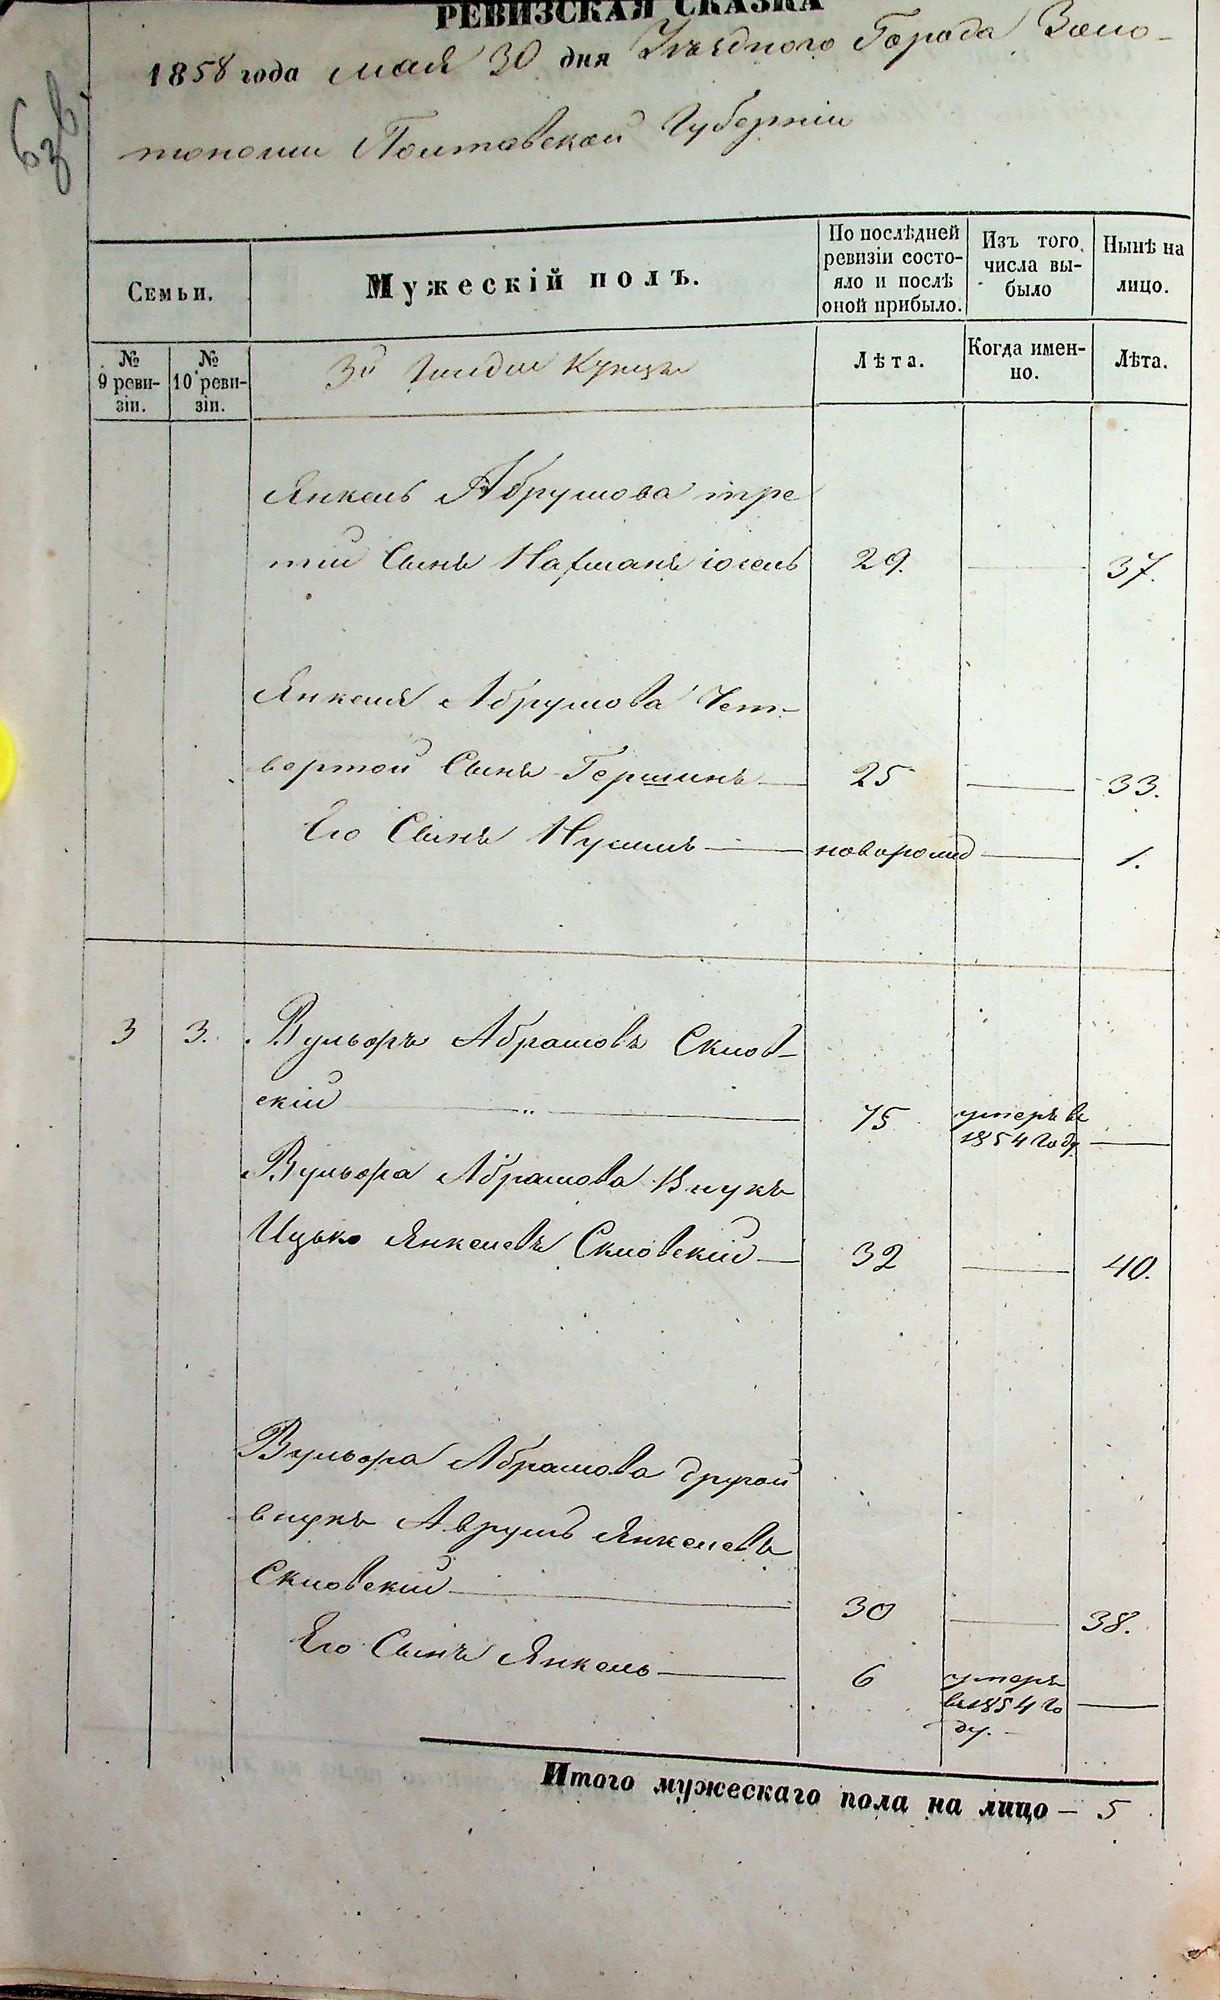 РЕВИЗСКАЯ СКАЗКА
1858 года мая 30 дня Уѣзднаго Города Золо-
тоноши Полтавской Губерніи
Семьи.
Мужескій полъ.
По послѣдней ревизіи состо-
яло и послѣ оной прибыло.
Изъ того числа вы-
было
Нынѣ на лицо.
№ 9 реви-
зіи.
№ 10 реви-
зіи.
3й Гильдіи Купцы
Лѣта.
Когда имен-
но.
Лѣта.
Янкель Абрумова тре
тій Сынъ Нахманъ іосель 29. 37.
Янкеля Абрумова Чет-
вертой Сынъ Гершинъ 25 33.
Его Сынъ Нусимъ новорожд 1.
3 3. Вульфъ Абрамовъ Скловъ-
скій 75 умеръ въ
1854 году
Вульфа Абрамова Внукъ
Ицько Янкелевъ Скловскій 32 40.
Вульфа Абрамова другой
внукъ Аврумъ Янкелевъ
Скловскій 30 38.
Его Сынъ Янкель 6 умеръ
въ 1854 го
ду.
Итого мужескаго пола на лицо – 5